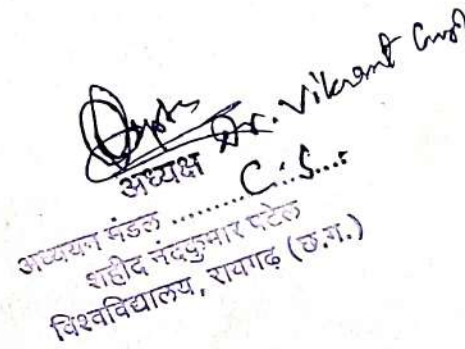 Dr. Vikrant
अध्यक्ष
अध्ययन मंडल ......... C.S....
शहीद नंदकुमार पटेल
विश्वविद्यालय, रायगढ़ (छ.ग.)